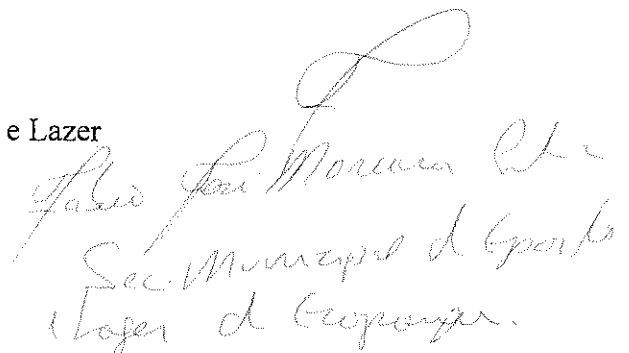 e Lazer
Fabio José Moreira
Sec. Municipal d Esporte
e Lazer d